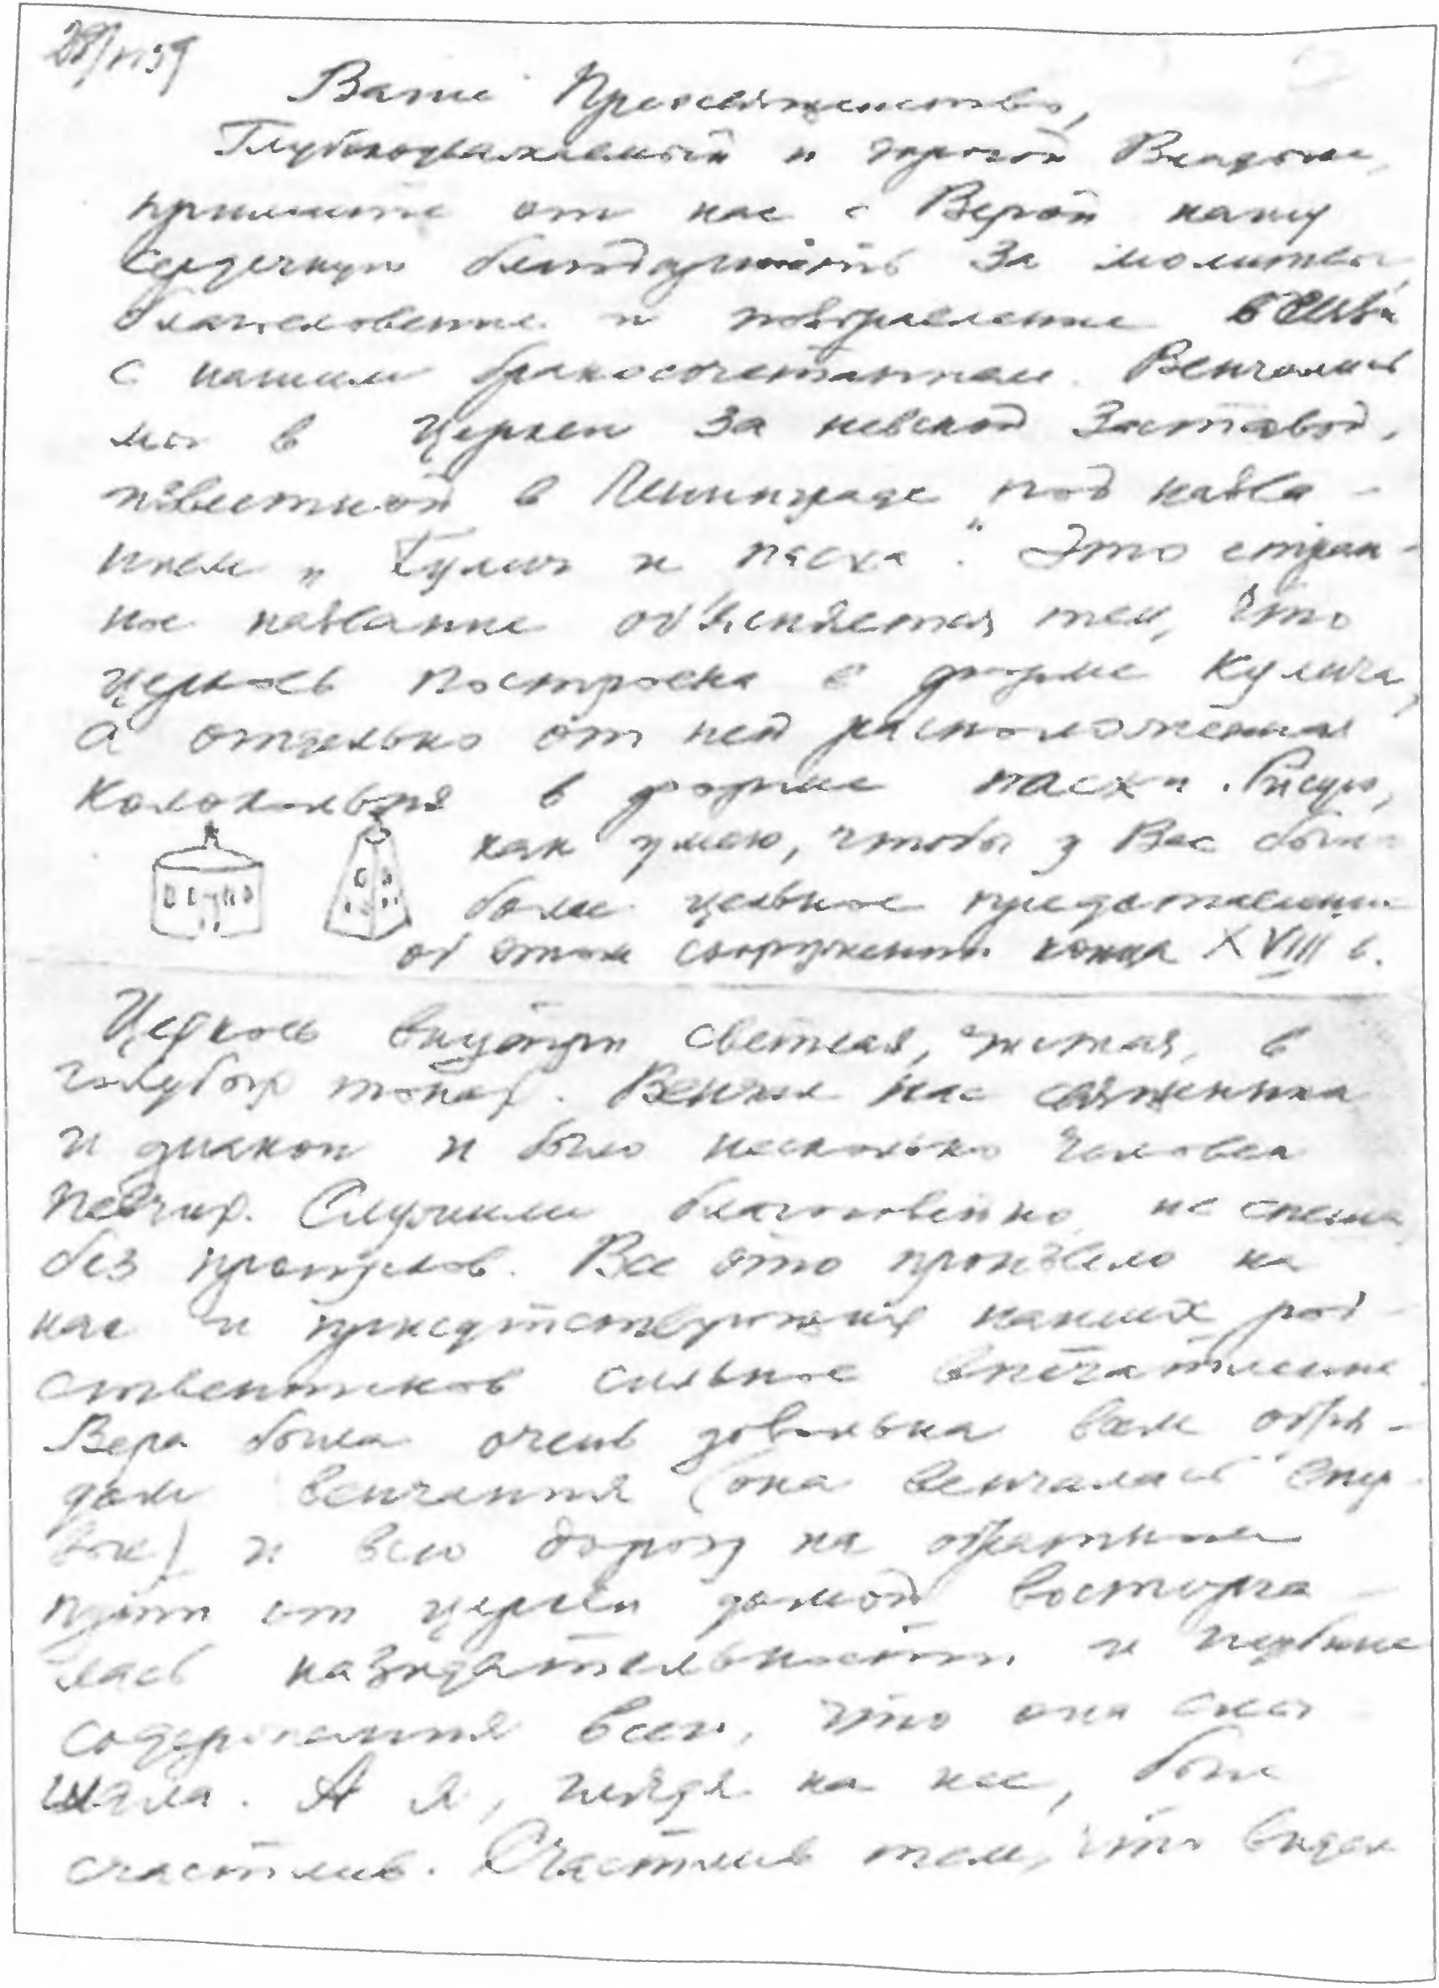 Ваше Преосвященство,
Глубокоуважаемый и дорогой Владыко,
примите от нас с Верой нашу
сердечную благодарность за молитвы
благословение и поздравление
с нашим бракосочетанием. Венчались
мы в церкви за Невской Заставой,
известной в Ленинграде под назва-
нием „Кулич и пасха“. Это стран-
ное название объясняется тем, что
церковь построена в форме кулича,
а отдельно от ней расположенная
колокольня в форме пасхи. Рисую,
как умею, чтобы у Вас было
более цельное представление
об этом сооружении конца XVIII в.
Церковь внутри светлая, чистая, в
голубых тонах. Венчал нас священник
и диакон и было несколько человек
певчих. Служили благоговейно, не спеша
без пропусков. Все это произвело на
нас и присутствующих наших род-
ственников сильное впечатление.
Вера была очень довольна всем обря-
дом венчания (она венчалась впер-
вые) и всю дорогу на обратном
пути от церкви домой восторга-
лась назидательностью и глубине
содержания всего, что она слы-
шала. А я, глядя на нее, был
счастлив. Счастлив тем, что видел